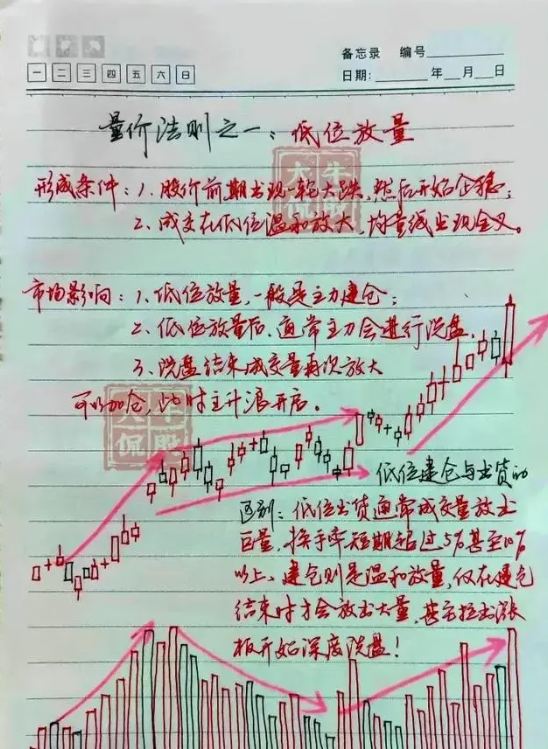 备忘录 编号
一 二 三 四 五 六 日
日期： 年 月 日
量价法则之一：低位放量
大牛
侃股
形成条件：1、股价前期出现一轮大跌，然后开始企稳；
2、成交在低位温和放大，均量线出现金叉。
市场影响：1、低位放量，一般是主力建仓；
2、低位放量后，通常主力会进行洗盘，
3、洗盘结束成交量再次放大
可以加仓，此时主升浪开启。
大牛
侃股
低位建仓与出货的
区别：低位出货通常成交量放出
巨量，换手率短期超过5%甚至10%
以上，建仓则是温和放量，仅在建仓
结束时才会放出大量，甚至拉出涨
板开始深度洗盘！